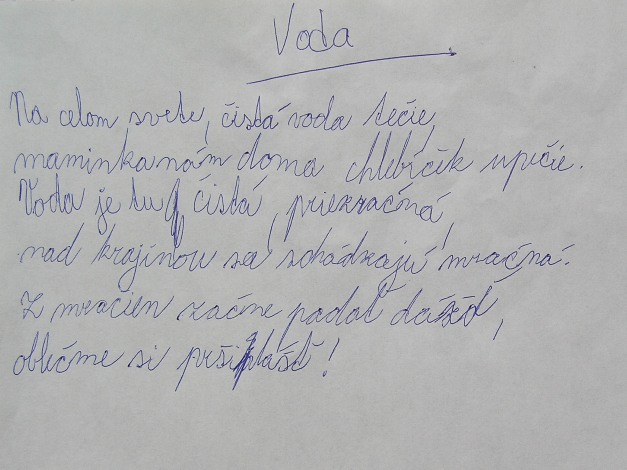 Voda
Na celom svete, čistá voda tečie,
maminka nám doma chlebíčik upečie.
Voda je tu, čistá, priezračná,
nad krajinou sa schádzajú mračná.
Z mračien začne padať dážď,
oblečme si pršiplášť!